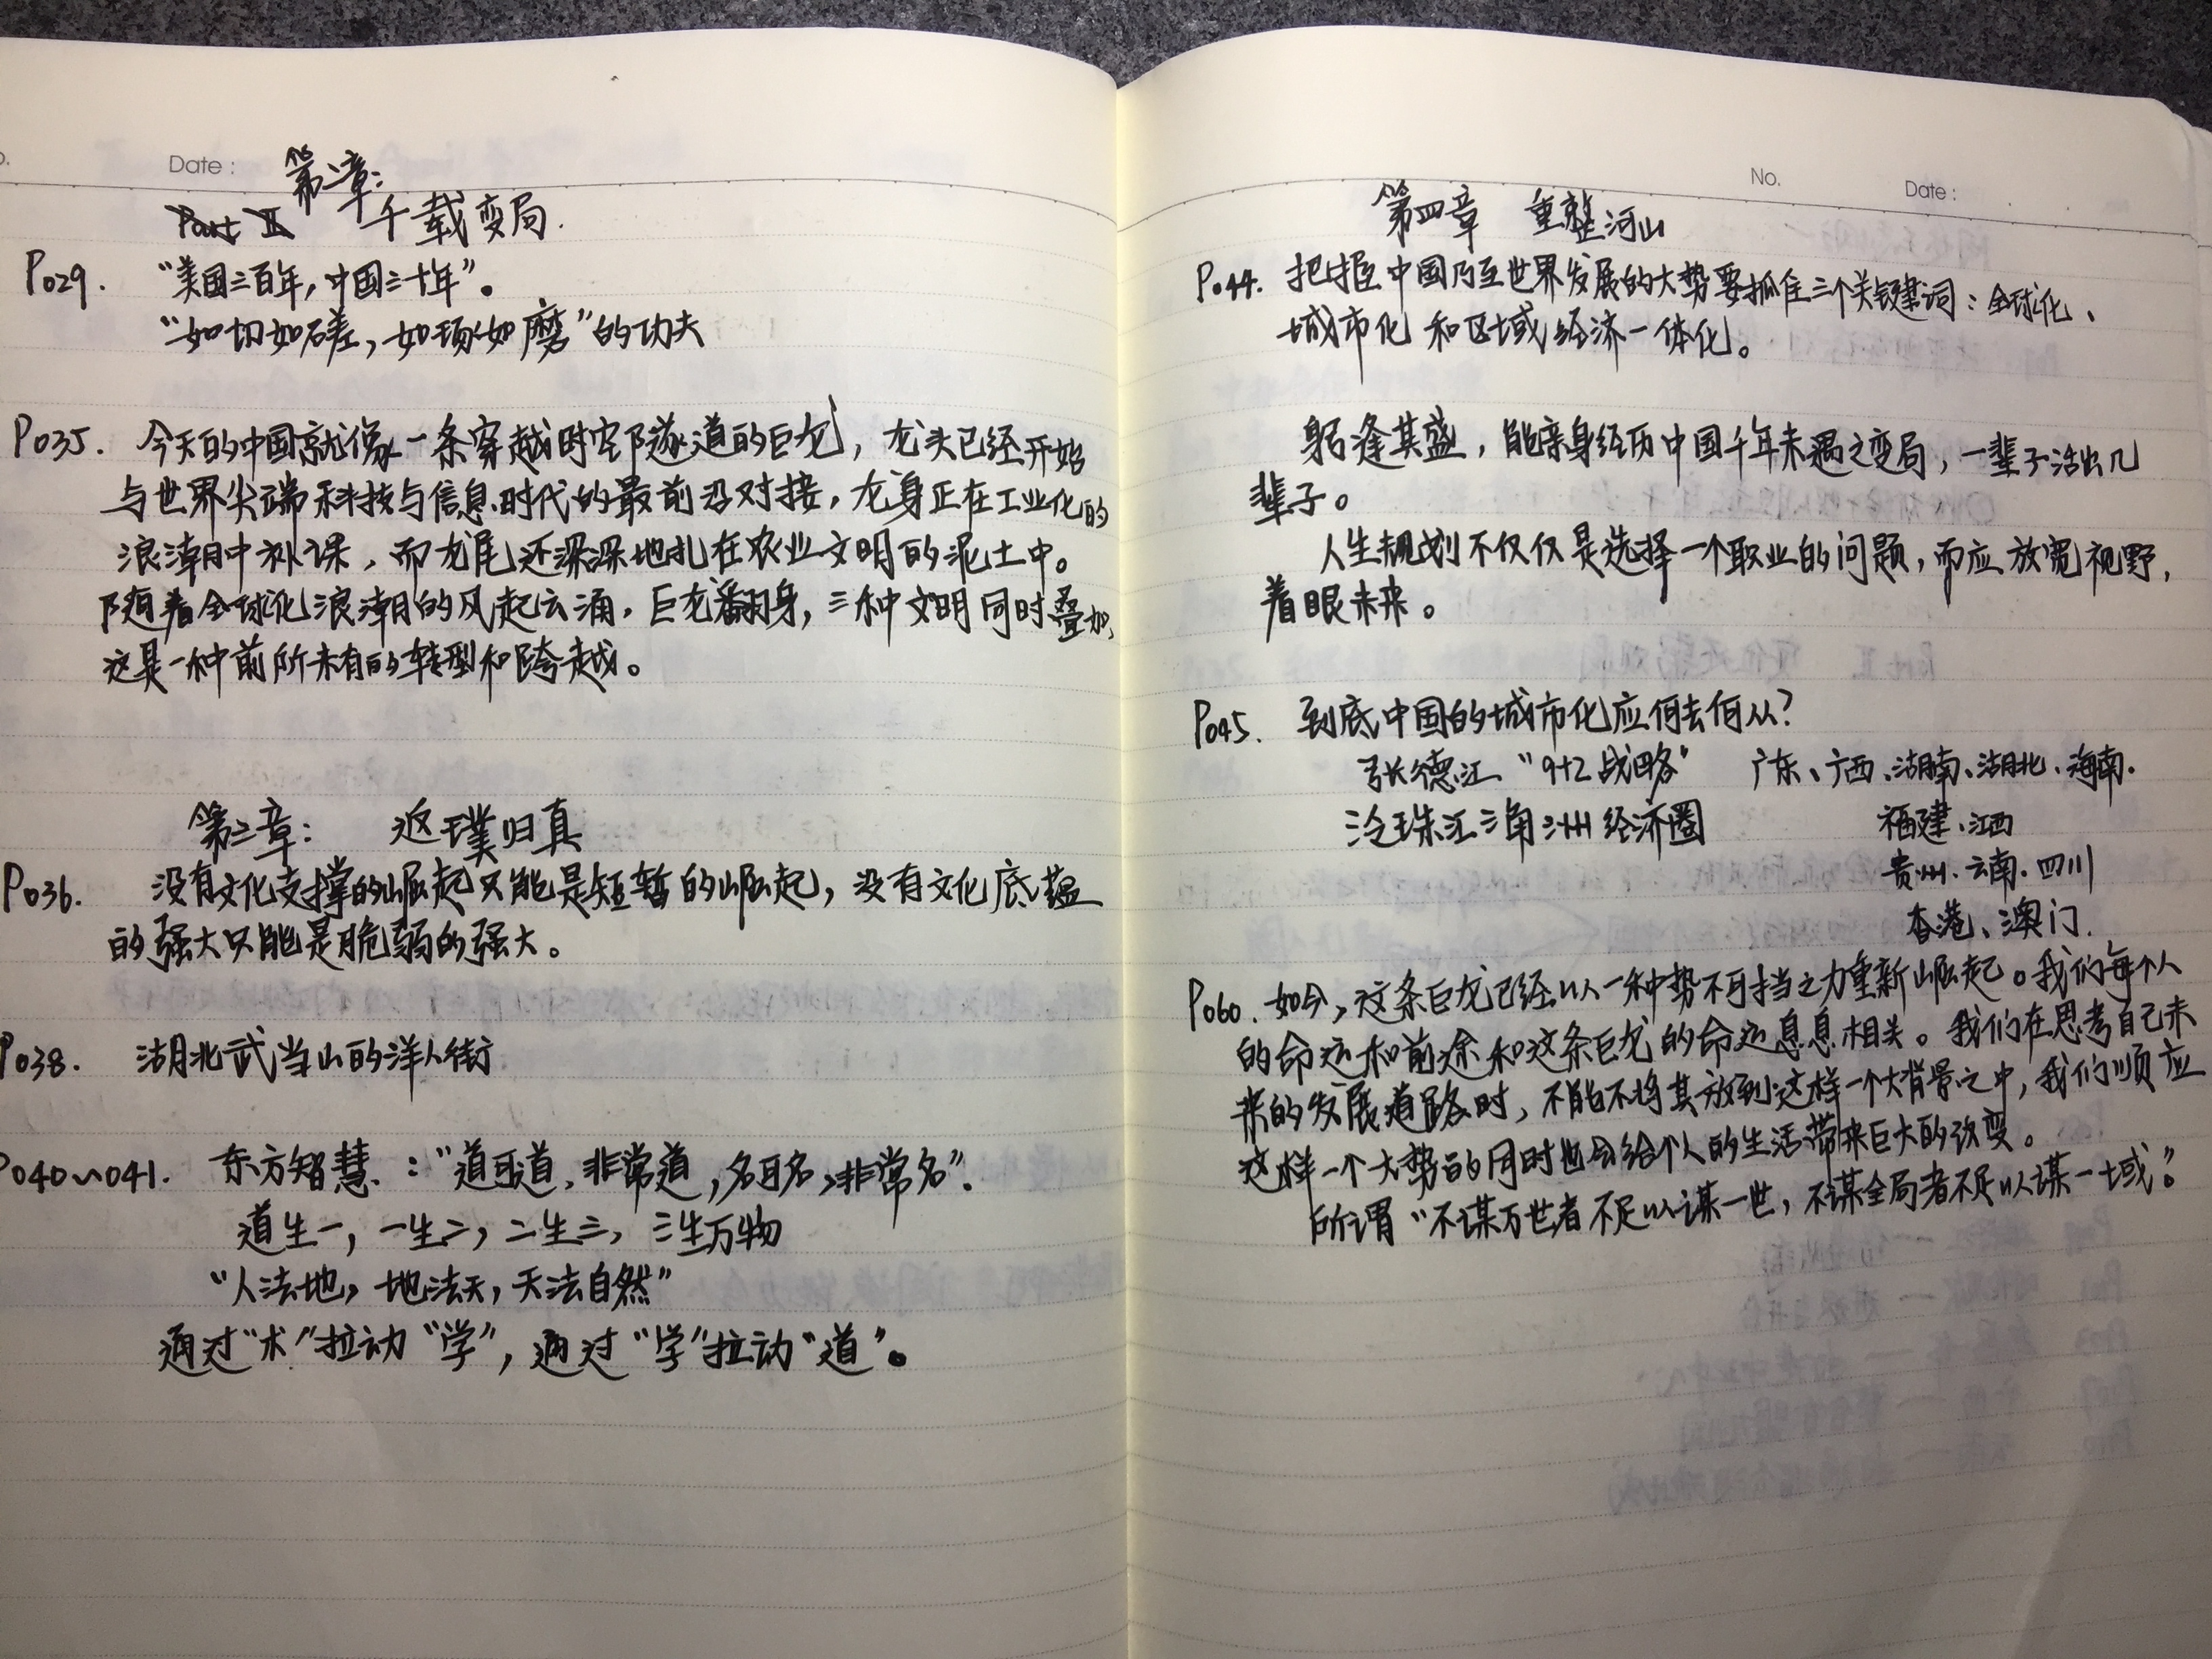 Date :
第二章:
千载变局.
P029. “美国三百年,中国三十年”。
“如切如磋,如琢如磨”的功夫
P035. 今天的中国就像一条穿越时空隧道的巨龙,龙头已经开始
与世界尖端科技与信息时代的最前沿对接,龙身正在工业化的
浪潮中补课,而龙尾还深深地扎在农业文明的泥土中。
随着全球化浪潮的风起云涌,巨龙翻身,三种文明同时叠加,
这是一种前所未有的转型和跨越。
第三章: 返璞归真
P036. 没有文化支撑的崛起只能是短暂的崛起,没有文化底蕴
的强大只能是脆弱的强大。
P038. 湖北武当山的洋人街
P040~041. 东方智慧:“道可道,非常道,名可名,非常名”.
道生一,一生二,二生三,三生万物
“人法地,地法天,天法自然”
通过“术”拉动“学”,通过“学”拉动“道”。
No. Date :
第四章 重整河山
P044. 把握中国乃至世界发展的大势要抓住三个关键词:全球化、
城市化和区域经济一体化。
躬逢其盛,能亲身经历中国千年未遇之变局,一辈子活出几
辈子。
人生规划不仅仅是选择一个职业的问题,而应放宽视野,
着眼未来。
P045. 到底中国的城市化应何去何从?
张德江“9+2战略” 广东、广西、湖南、湖北、海南.
泛珠江三角洲经济圈 福建、江西
贵州.云南.四川
香港、澳门.
P060. 如今,这条巨龙已经以一种势不可挡之力重新崛起。我们每个人
的命运和前途和这条巨龙的命运息息相关。我们在思考自己未
来的发展道路时,不能不将其放到这样一个大背景之中,我们顺应
这样一个大势的同时也会给个人的生活带来巨大的改变。
所谓“不谋万世者不足以谋一世,不谋全局者不足以谋一域”。